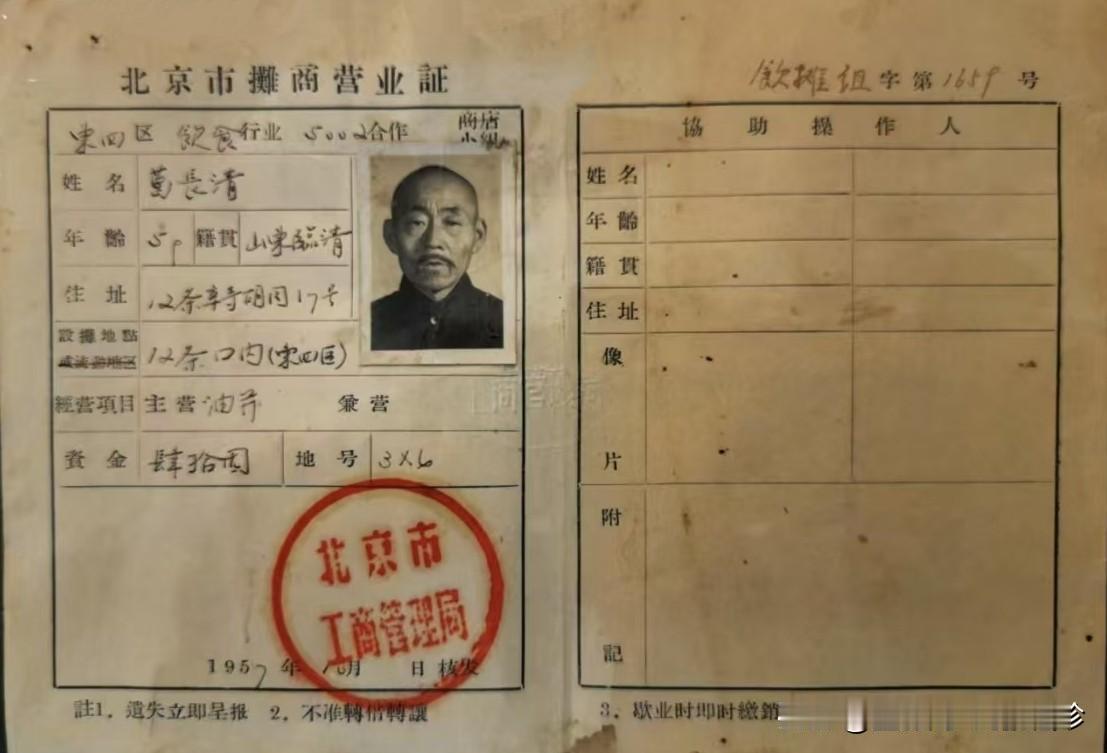 北京市攤商营业証
飲攤组字第1659号
東四区 飲食行业 5002合作 商店小組
姓名 萬長清
年齡 59 籍貫 山東臨清
住址 12条辛寺胡同17号
設攤地點
或流動地区 12条口内(東四区)
經营項目 主营 油芥 兼营
資金 肆拾圆 地号 3×6
北京市
工商管理局
1957年 月 日核发
註1. 遺失立即呈报 2. 不准轉借轉讓
協助操作人
姓名
年齡
籍貫
住址
像
片
附
記
3. 歇业时即时繳銷